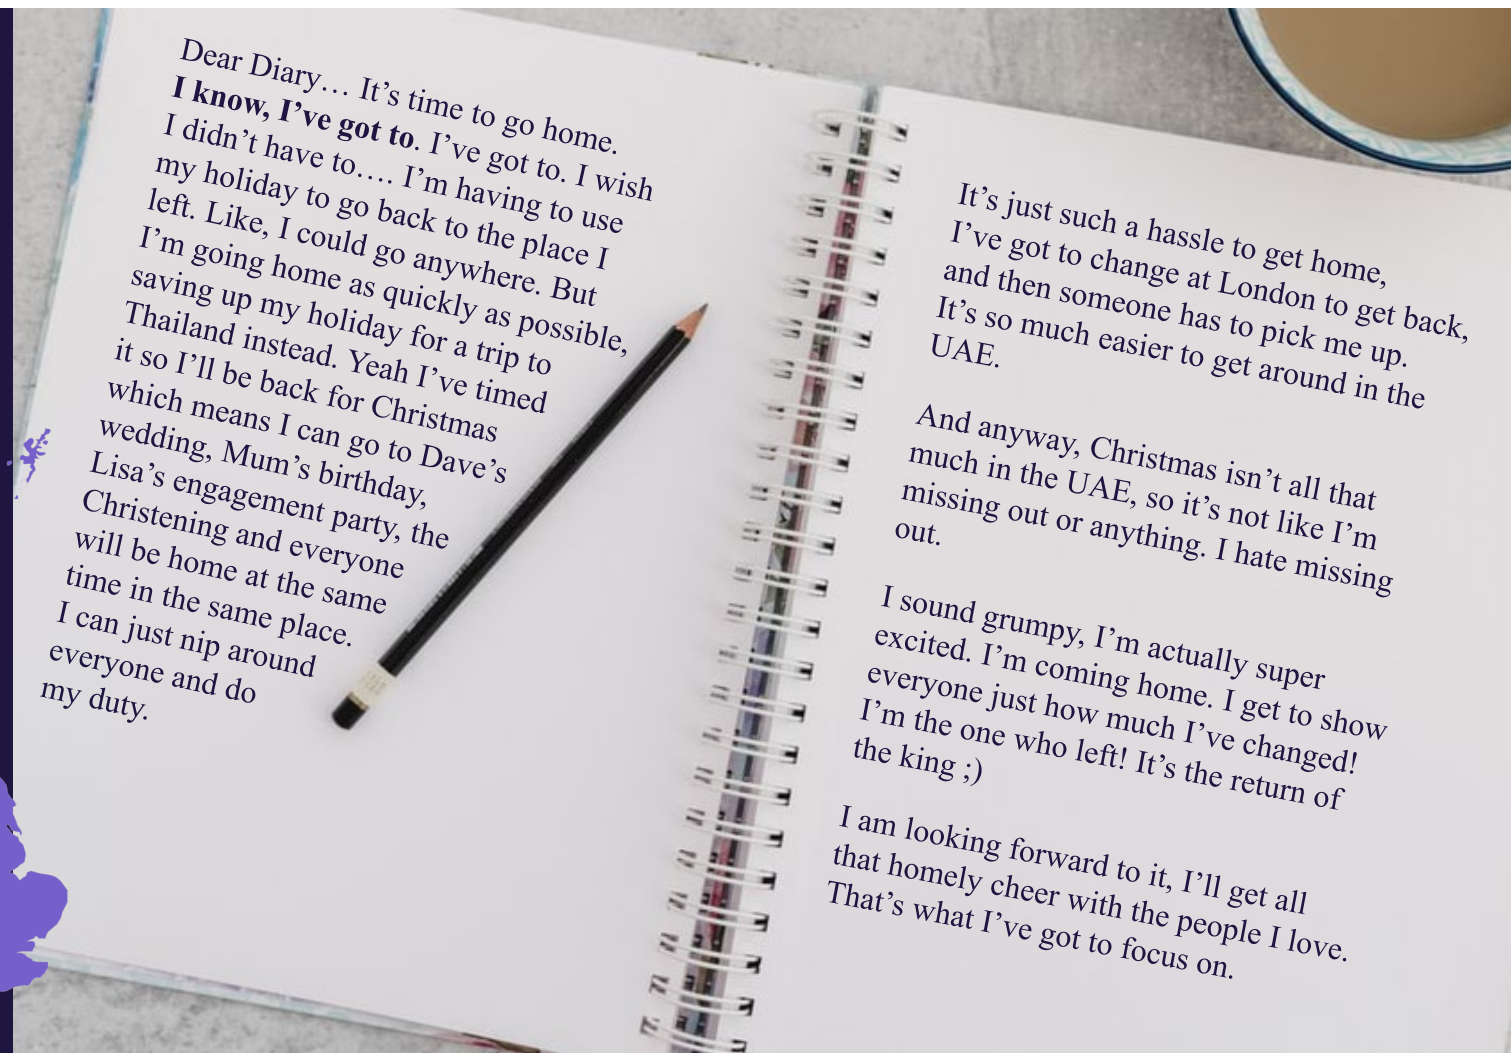 Dear Diary… It’s time to go home.
I know, I’ve got to. I’ve got to. I wish
I didn’t have to…. I’m having to use
my holiday to go back to the place I
left. Like, I could go anywhere. But
I’m going home as quickly as possible,
saving up my holiday for a trip to
Thailand instead. Yeah I’ve timed
it so I’ll be back for Christmas
which means I can go to Dave’s
wedding, Mum’s birthday,
Lisa’s engagement party, the
Christening and everyone
will be home at the same
time in the same place.
I can just nip around
everyone and do
my duty.
It’s just such a hassle to get home,
I’ve got to change at London to get back,
and then someone has to pick me up.
It’s so much easier to get around in the
UAE.
And anyway, Christmas isn’t all that
much in the UAE, so it’s not like I’m
missing out or anything. I hate missing
out.
I sound grumpy, I’m actually super
excited. I’m coming home. I get to show
everyone just how much I’ve changed!
I’m the one who left! It’s the return of
the king ;)
I am looking forward to it, I’ll get all
that homely cheer with the people I love.
That’s what I’ve got to focus on.